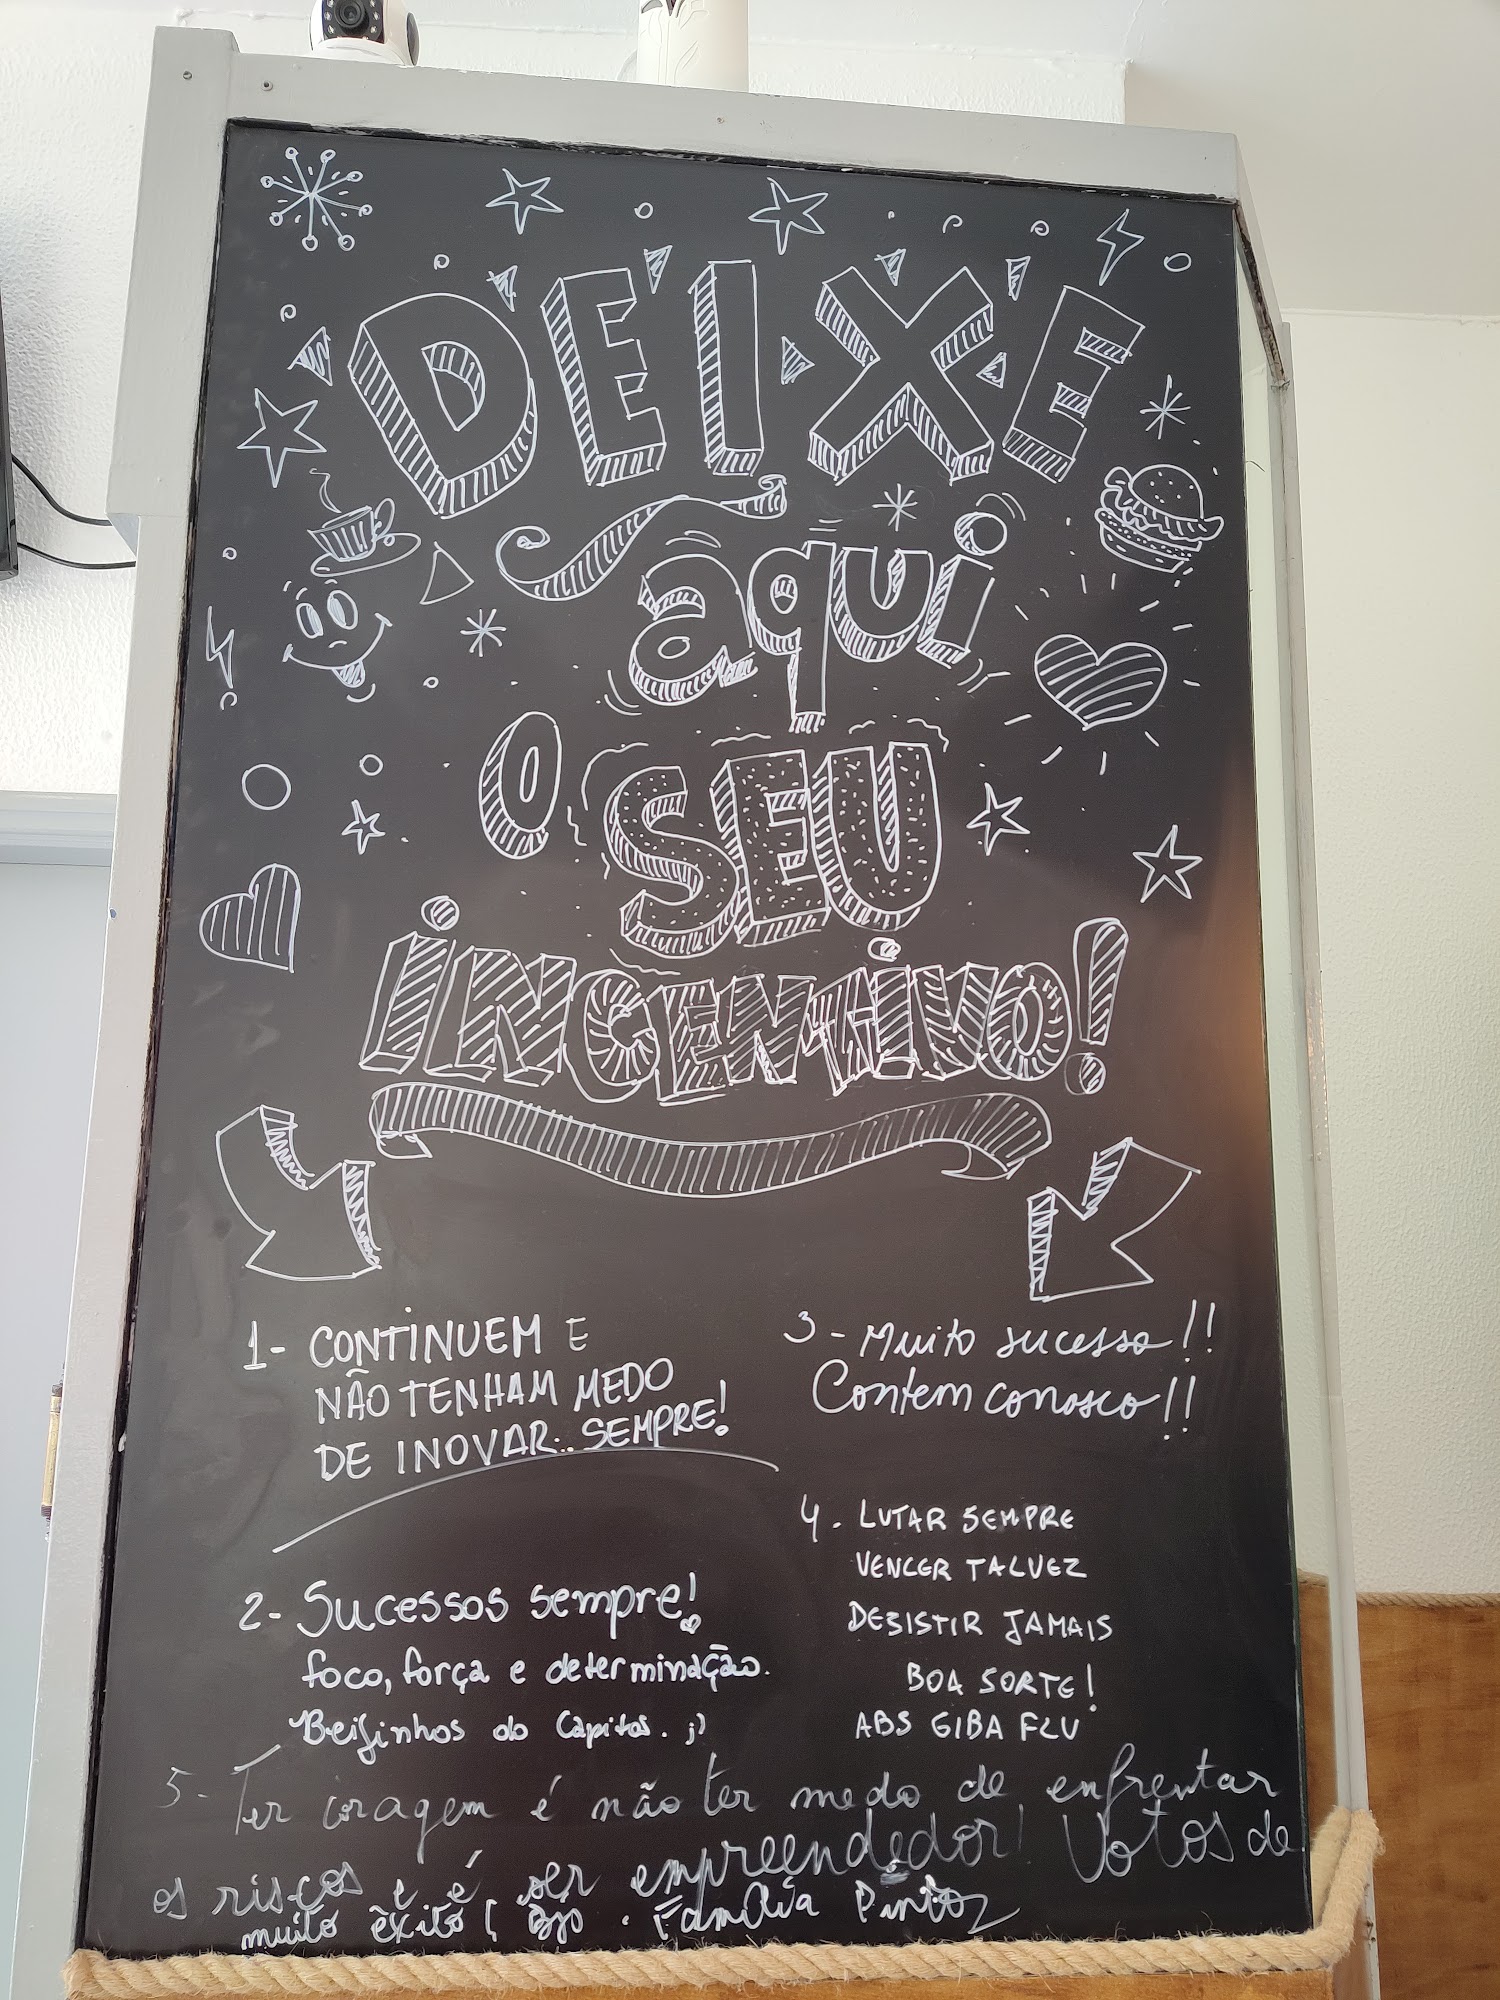 DEIXE
aqui
O SEU
iNCENTiVO!
1- CONTINUEM E
NÃO TENHAM MEDO
DE INOVAR... SEMPRE!
2- Sucessos sempre!
foco, força e determinação.
Beijinhos do Capitas. ;)
3- Muito sucesso!!
Contem conosco!!
4. LUTAR SEMPRE
VENCER TALVEZ
DESISTIR JAMAIS
BOA SORTE!
ABS GIBA FLU
5- Ter coragem é não ter medo de enfrentar
os riscos e é ser empreendedor! Votos de
muito êxito! Bjs. Família Pinto